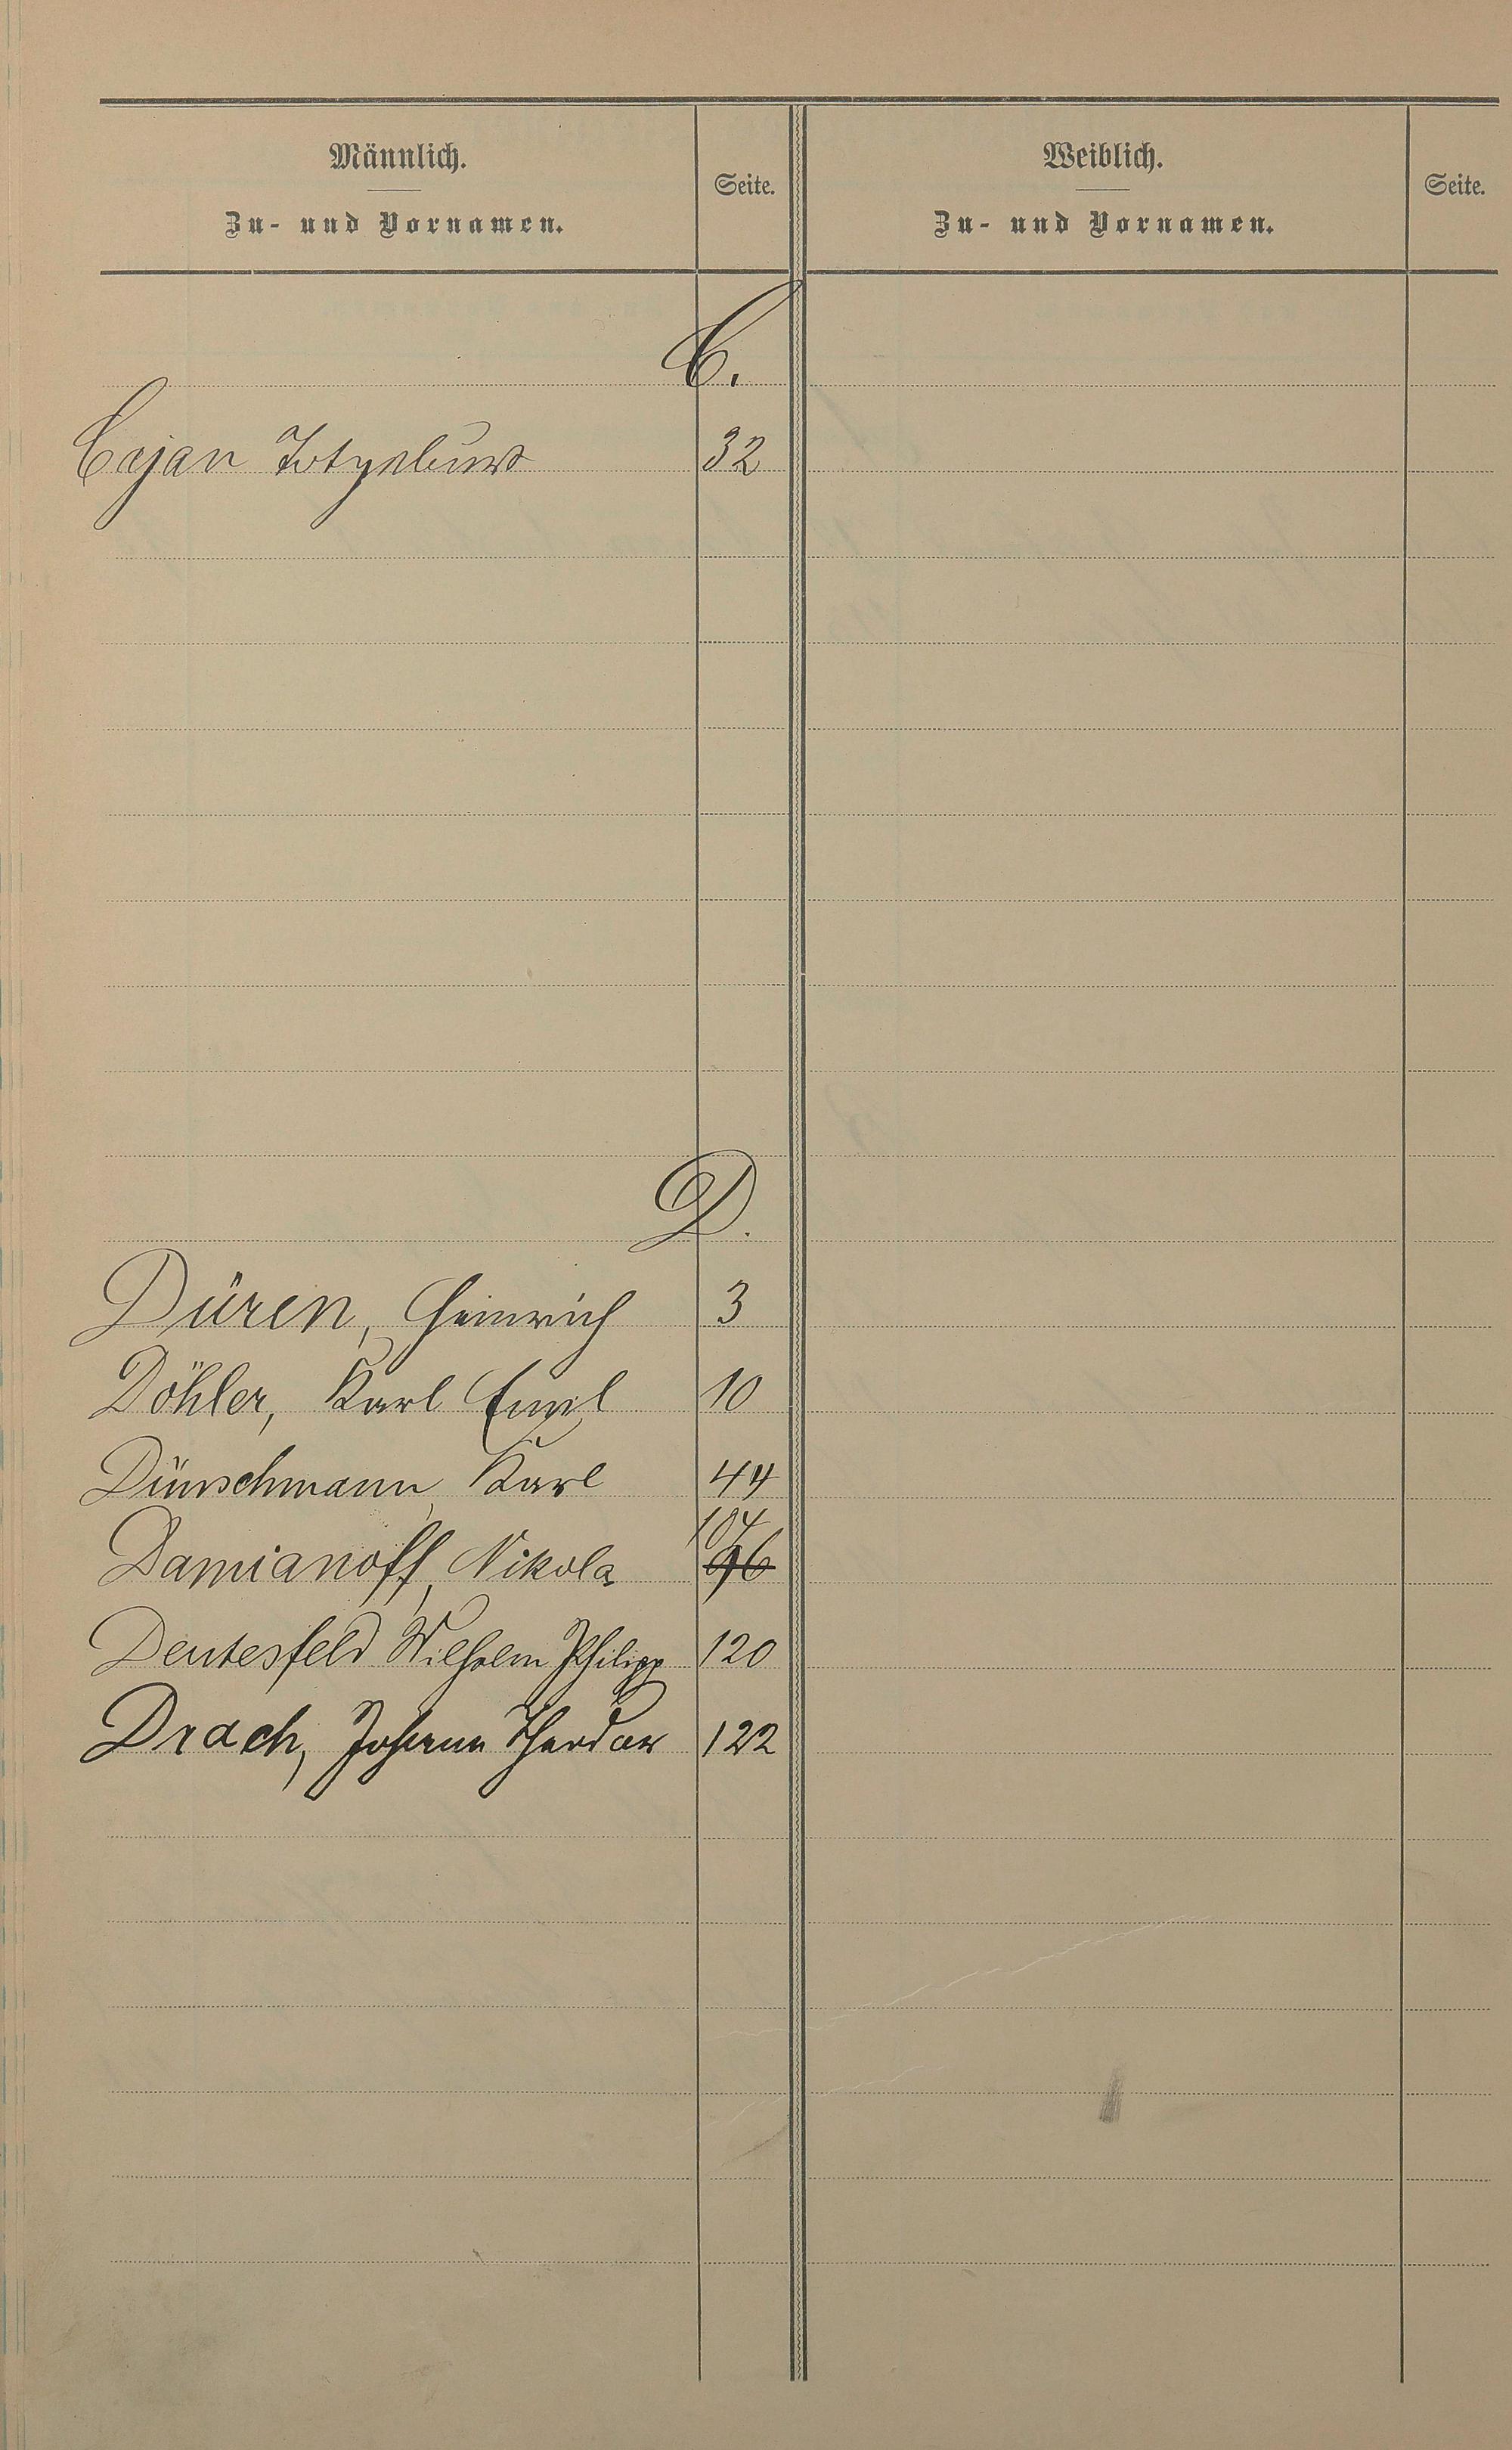 Männlich.
Zu- und Vornamen.
Seite.
Weiblich.
Zu- und Vornamen.
Seite.
C.
Cajan 32
D.
Düren, Heinrich 3
Döhler, Karl Emil 10
Dünschmann, Karl 44
104
Damianoff, Nikola 96
Dentesfeld Wilhelm Philipp 120
Drach, Johann 122